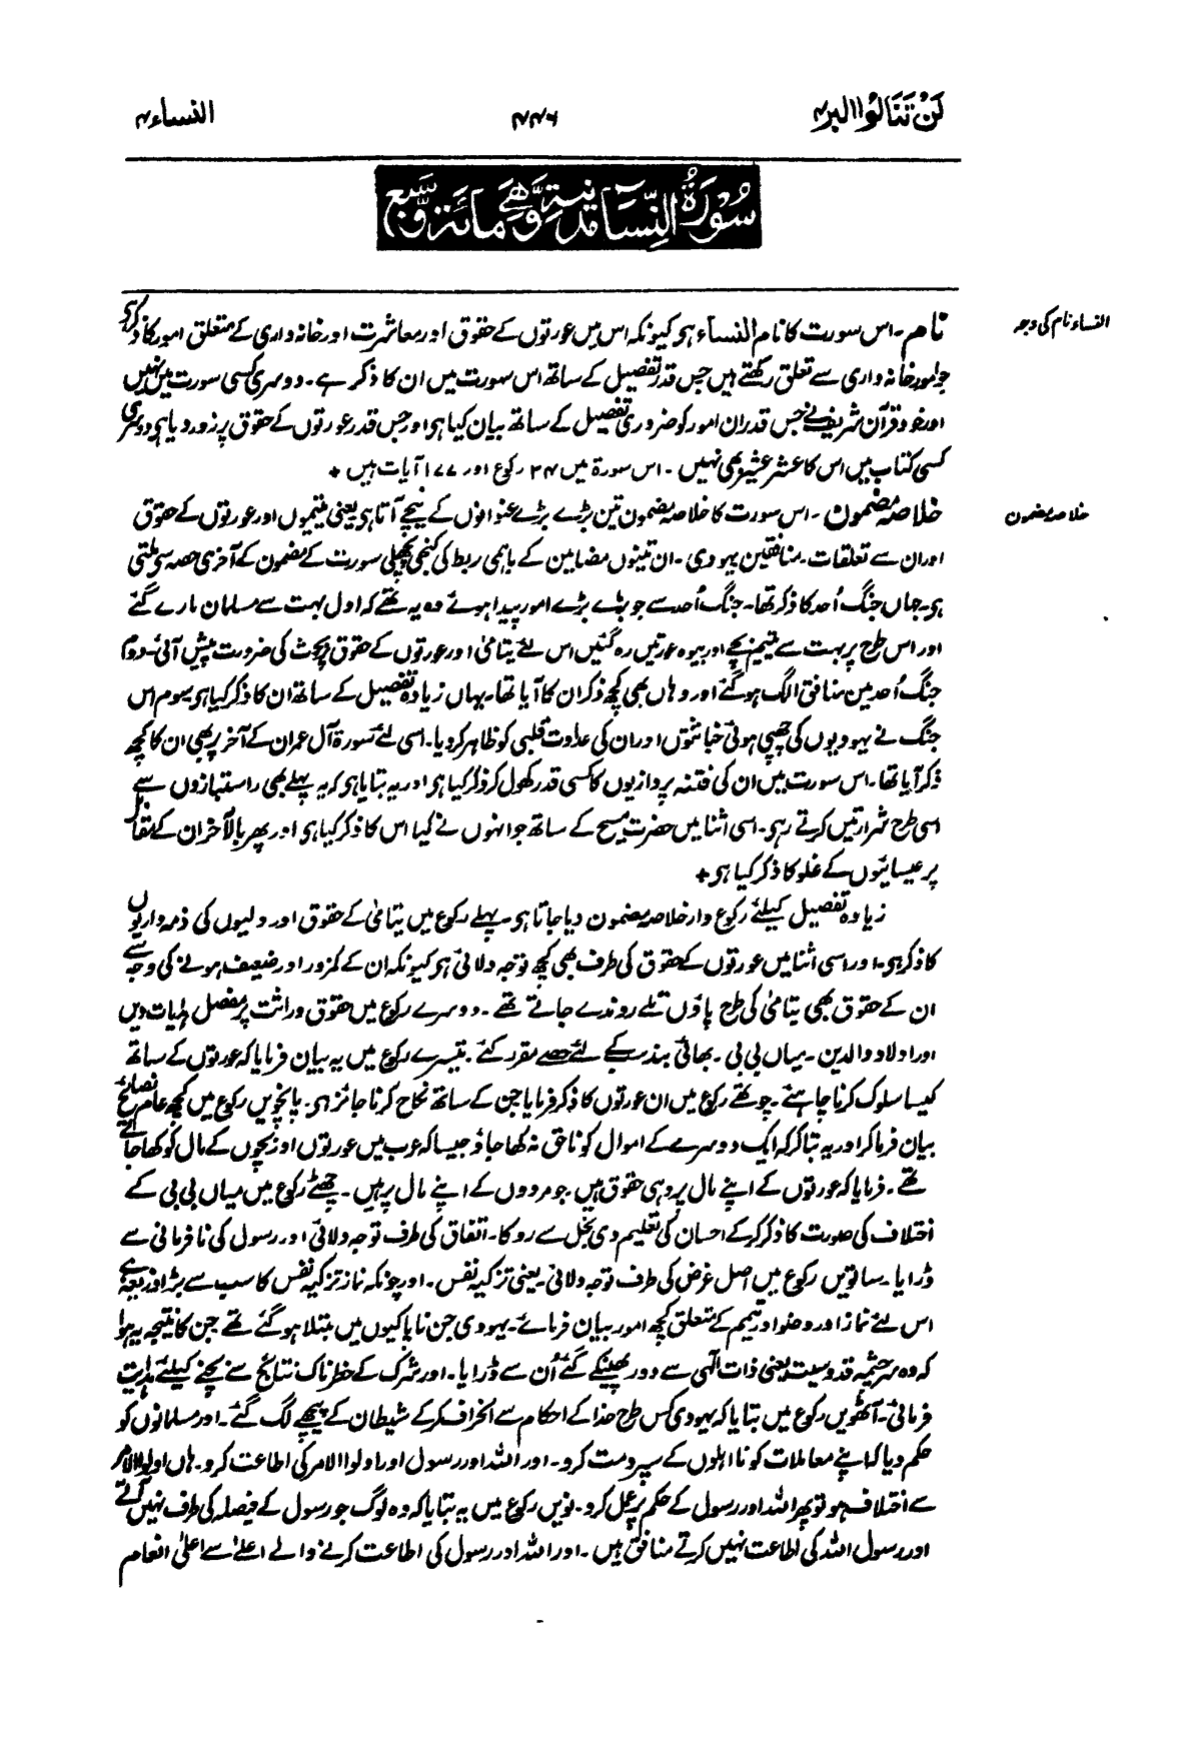 لَنْ تَنَالُوا البر۴
۴۴۶
النساء۴
سُوْرَةُ النِّسَآءِ مَدَنِيَّةٌ وَّهِيَ مِائَةٌ وَّسَبْعٌ
النساء نام کی وجہ
نام۔ اس سورت کا نام النساء ہو کیونکہ اس میں عورتوں کے حقوق اور معاشرت اور خانہ داری کے متعلق امور کا ذکر ہی
جو امور خانہ داری سے تعلق رکھتے ہیں جس قدر تفصیل کے ساتھ اس سورت میں ان کا ذکر ہے۔ دوسری کسی سورت میں نہیں
اور خود قرآن شریف نے جس قدر ان امور کو ضروری تفصیل کے ساتھ بیان کیا ہو اور جس قدر عورتوں کے حقوق پر زور دیا ہی دوسری
کسی کتاب میں اس کا عشر عشیر بھی نہیں۔ اس سورۃ میں ۲۴ رکوع اور ۱۷۷ آیات ہیں +
خلاصہ مضمون
خلاصہ مضمون۔ اس سورت کا خلاصہ مضمون تین بڑے بڑے عنوانوں کے نیچے آتا ہو یعنی یتیموں اور عورتوں کے حقوق
اور ان سے تعلقات۔ منافقین یہودی۔ ان تینوں مضامین کے باہمی ربط کی کنجی پچھلی سورت کے مضمون کے آخری حصہ سے ملتی
ہو۔ جہاں جنگ اُحد کا ذکر تھا۔ جنگ اُحد سے جو بڑے بڑے امور پیدا ہوئے وہ یہ تھے کہ اول بہت سے مسلمان مارے گئے
اور اس طرح پر بہت سے یتیم بچے اور بیوہ عورتیں رہ گئیں اس لئے یتامیٰ اور عورتوں کے حقوق پر بحث کی ضرورت پیش آئی۔ دوم
جنگ اُحد میں منافق الگ ہو گئے اور وہاں بھی کچھ ذکر ان کا آیا تھا۔ یہاں زیادہ تفصیل کے ساتھ ان کا ذکر کیا ہو سوم اس
جنگ نے یہودیوں کی چھپی ہوئی خباثتوں اور ان کی عداوت قلبی کو ظاہر کر دیا۔ اسی لئے سورۃ آل عمران کے آخر پر بھی ان کا کچھ
ذکر آیا تھا۔ اس سورت میں ان کی فتنہ پردازیوں کا کسی قدر کھول کر ذکر کیا ہو اور یہ بتایا ہو کہ یہ پہلے بھی راستبازوں سے
اسی طرح شرارتیں کرتے رہی۔ اسی اثنا میں حضرت مسیح کے ساتھ جو انہوں نے کیا اس کا ذکر کیا ہو اور پھر بالآخر ان کے مقابل
پر عیسائیوں کے غلو کا ذکر کیا ہو +
زیادہ تفصیل کیلئے رکوع وار خلاصہ مضمون دیا جاتا ہو۔ پہلے رکوع میں یتامیٰ کے حقوق اور ولیوں کی ذمہ داریوں
کا ذکر ہو۔ اور اسی اثنا میں عورتوں کے حقوق کی طرف بھی کچھ توجہ دلائی ہو کیونکہ ان کے کمزور اور ضعیف ہونے کی وجہ سے
ان کے حقوق بھی یتامیٰ کی طرح پاؤں تلے روندے جاتے تھے۔ دوسرے رکوع میں حقوق وراثت پر مفصل ہدایات دیں
اور اولاد والدین۔ میاں بی بی۔ بھائی بند کے لئے حصے مقرر کئے۔ تیسرے رکوع میں یہ بیان فرمایا کہ عورتوں کے ساتھ
کیسا سلوک کرنا چاہئے۔ چوتھے رکوع میں ان عورتوں کا ذکر فرمایا جن کے ساتھ نکاح کرنا جائز ہو۔ پانچویں رکوع میں کچھ عام نصائح
بیان فرما کر اور یہ بتا کر کہ ایک دوسرے کے اموال کو ناحق نہ کھا جاؤ جیسا کہ عرب میں عورتوں اور بچوں کے مال کو کھا جاتے
تھے۔ فرمایا کہ عورتوں کے اپنے مال پر وہی حقوق ہیں جو مردوں کے اپنے مال پر ہیں۔ چھٹے رکوع میں میاں بی بی کے
اختلاف کی صورت کا ذکر کر کے احسان کی تعلیم دی بخل سے روکا۔ اتفاق کی طرف توجہ دلائی اور رسول کی نافرمانی سے
ڈرایا۔ ساتویں رکوع میں اصل غرض کی طرف توجہ دلائی۔ یعنی تزکیہ نفس۔ اور چونکہ نماز تزکیہ نفس کا سب سے بڑا ذریعہ ہے
اس لئے نماز اور وضو اور تیمم کے متعلق کچھ امور بیان فرمائے۔ یہودی جن ناپاکیوں میں مبتلا ہو گئے تھے جن کا نتیجہ یہ ہوا
کہ وہ سرچشمہ قدوسیت یعنی ذات الٰہی سے دور پھینکے گئے اُن سے ڈرایا۔ اور شرک کے خطرناک نتائج سے بچنے کیلئے ہدایت
فرمائی۔ آٹھویں رکوع میں بتایا کہ یہودی کس طرح خدا کے احکام سے انحراف کر کے شیطان کے پیچھے لگ گئے۔ اور مسلمانوں کو
حکم دیا کہ اپنے معاملات کو نااہلوں کے سپرد مت کرو۔ اور اللہ اور رسول اور اولوا الامر کی اطاعت کرو۔ ہاں اولوا الامر
سے اختلاف ہو تو پھر اللہ اور رسول کے حکم پر عمل کرو۔ نویں رکوع میں یہ بتایا کہ وہ لوگ جو رسول کے فیصلہ کی طرف نہیں آتے
اور رسول اللہ کی اطاعت نہیں کرتے منافق ہیں۔ اور اللہ اور رسول کی اطاعت کرنے والے اعلےٰ سے اعلیٰ انعام